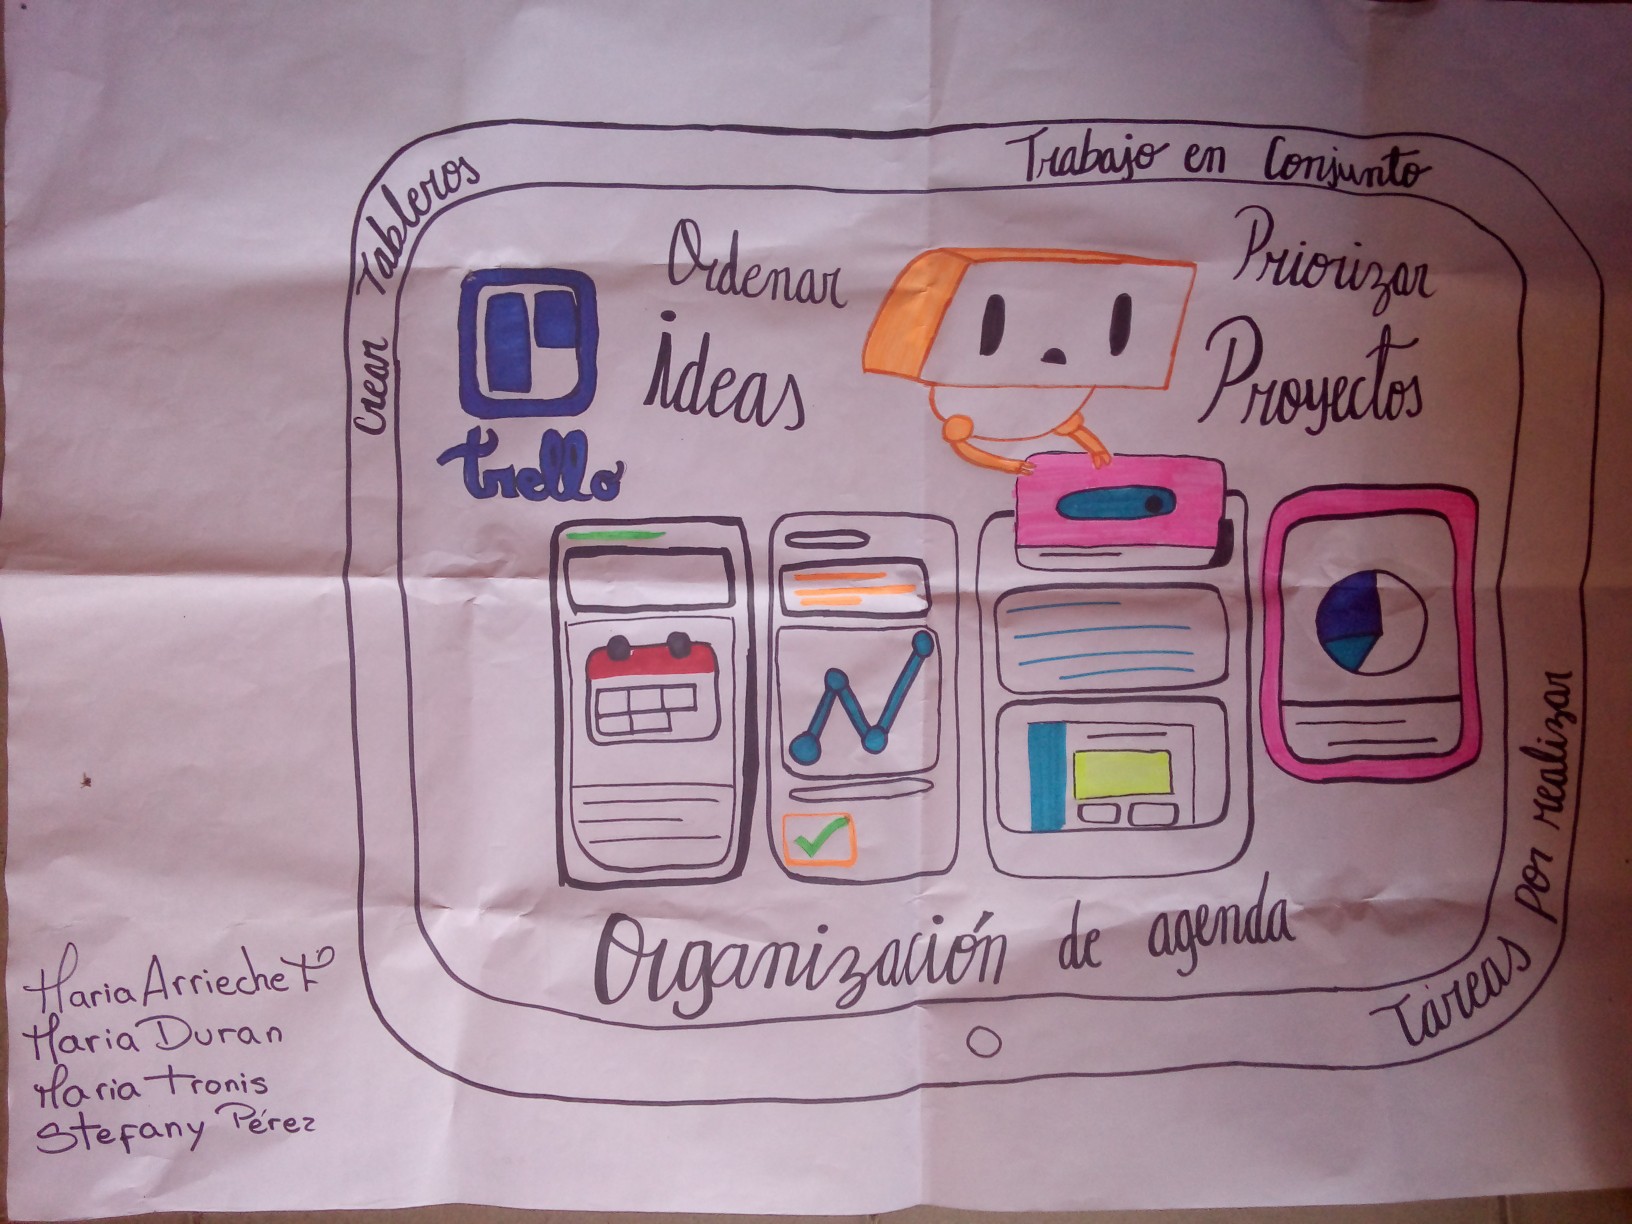 Crear Tableros
Trabajo en Conjunto
Ordenar
ideas
Priorizar
Proyectos
trello
Organización de agenda
Táreas por realizar
Maria Arrieche
Maria Duran
Maria Tronis
Stefany Pérez